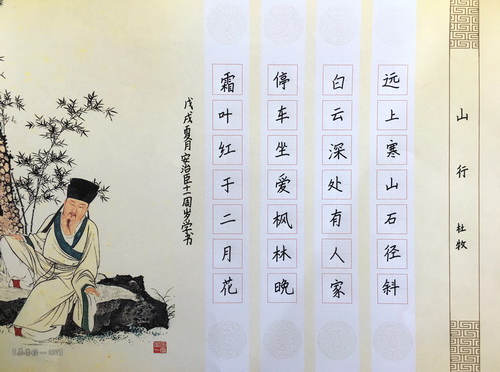 山行
杜牧
远上寒山石径斜
白云深处有人家
停车坐爱枫林晚
霜叶红于二月花
戊戌夏月安治臣十二周岁学书